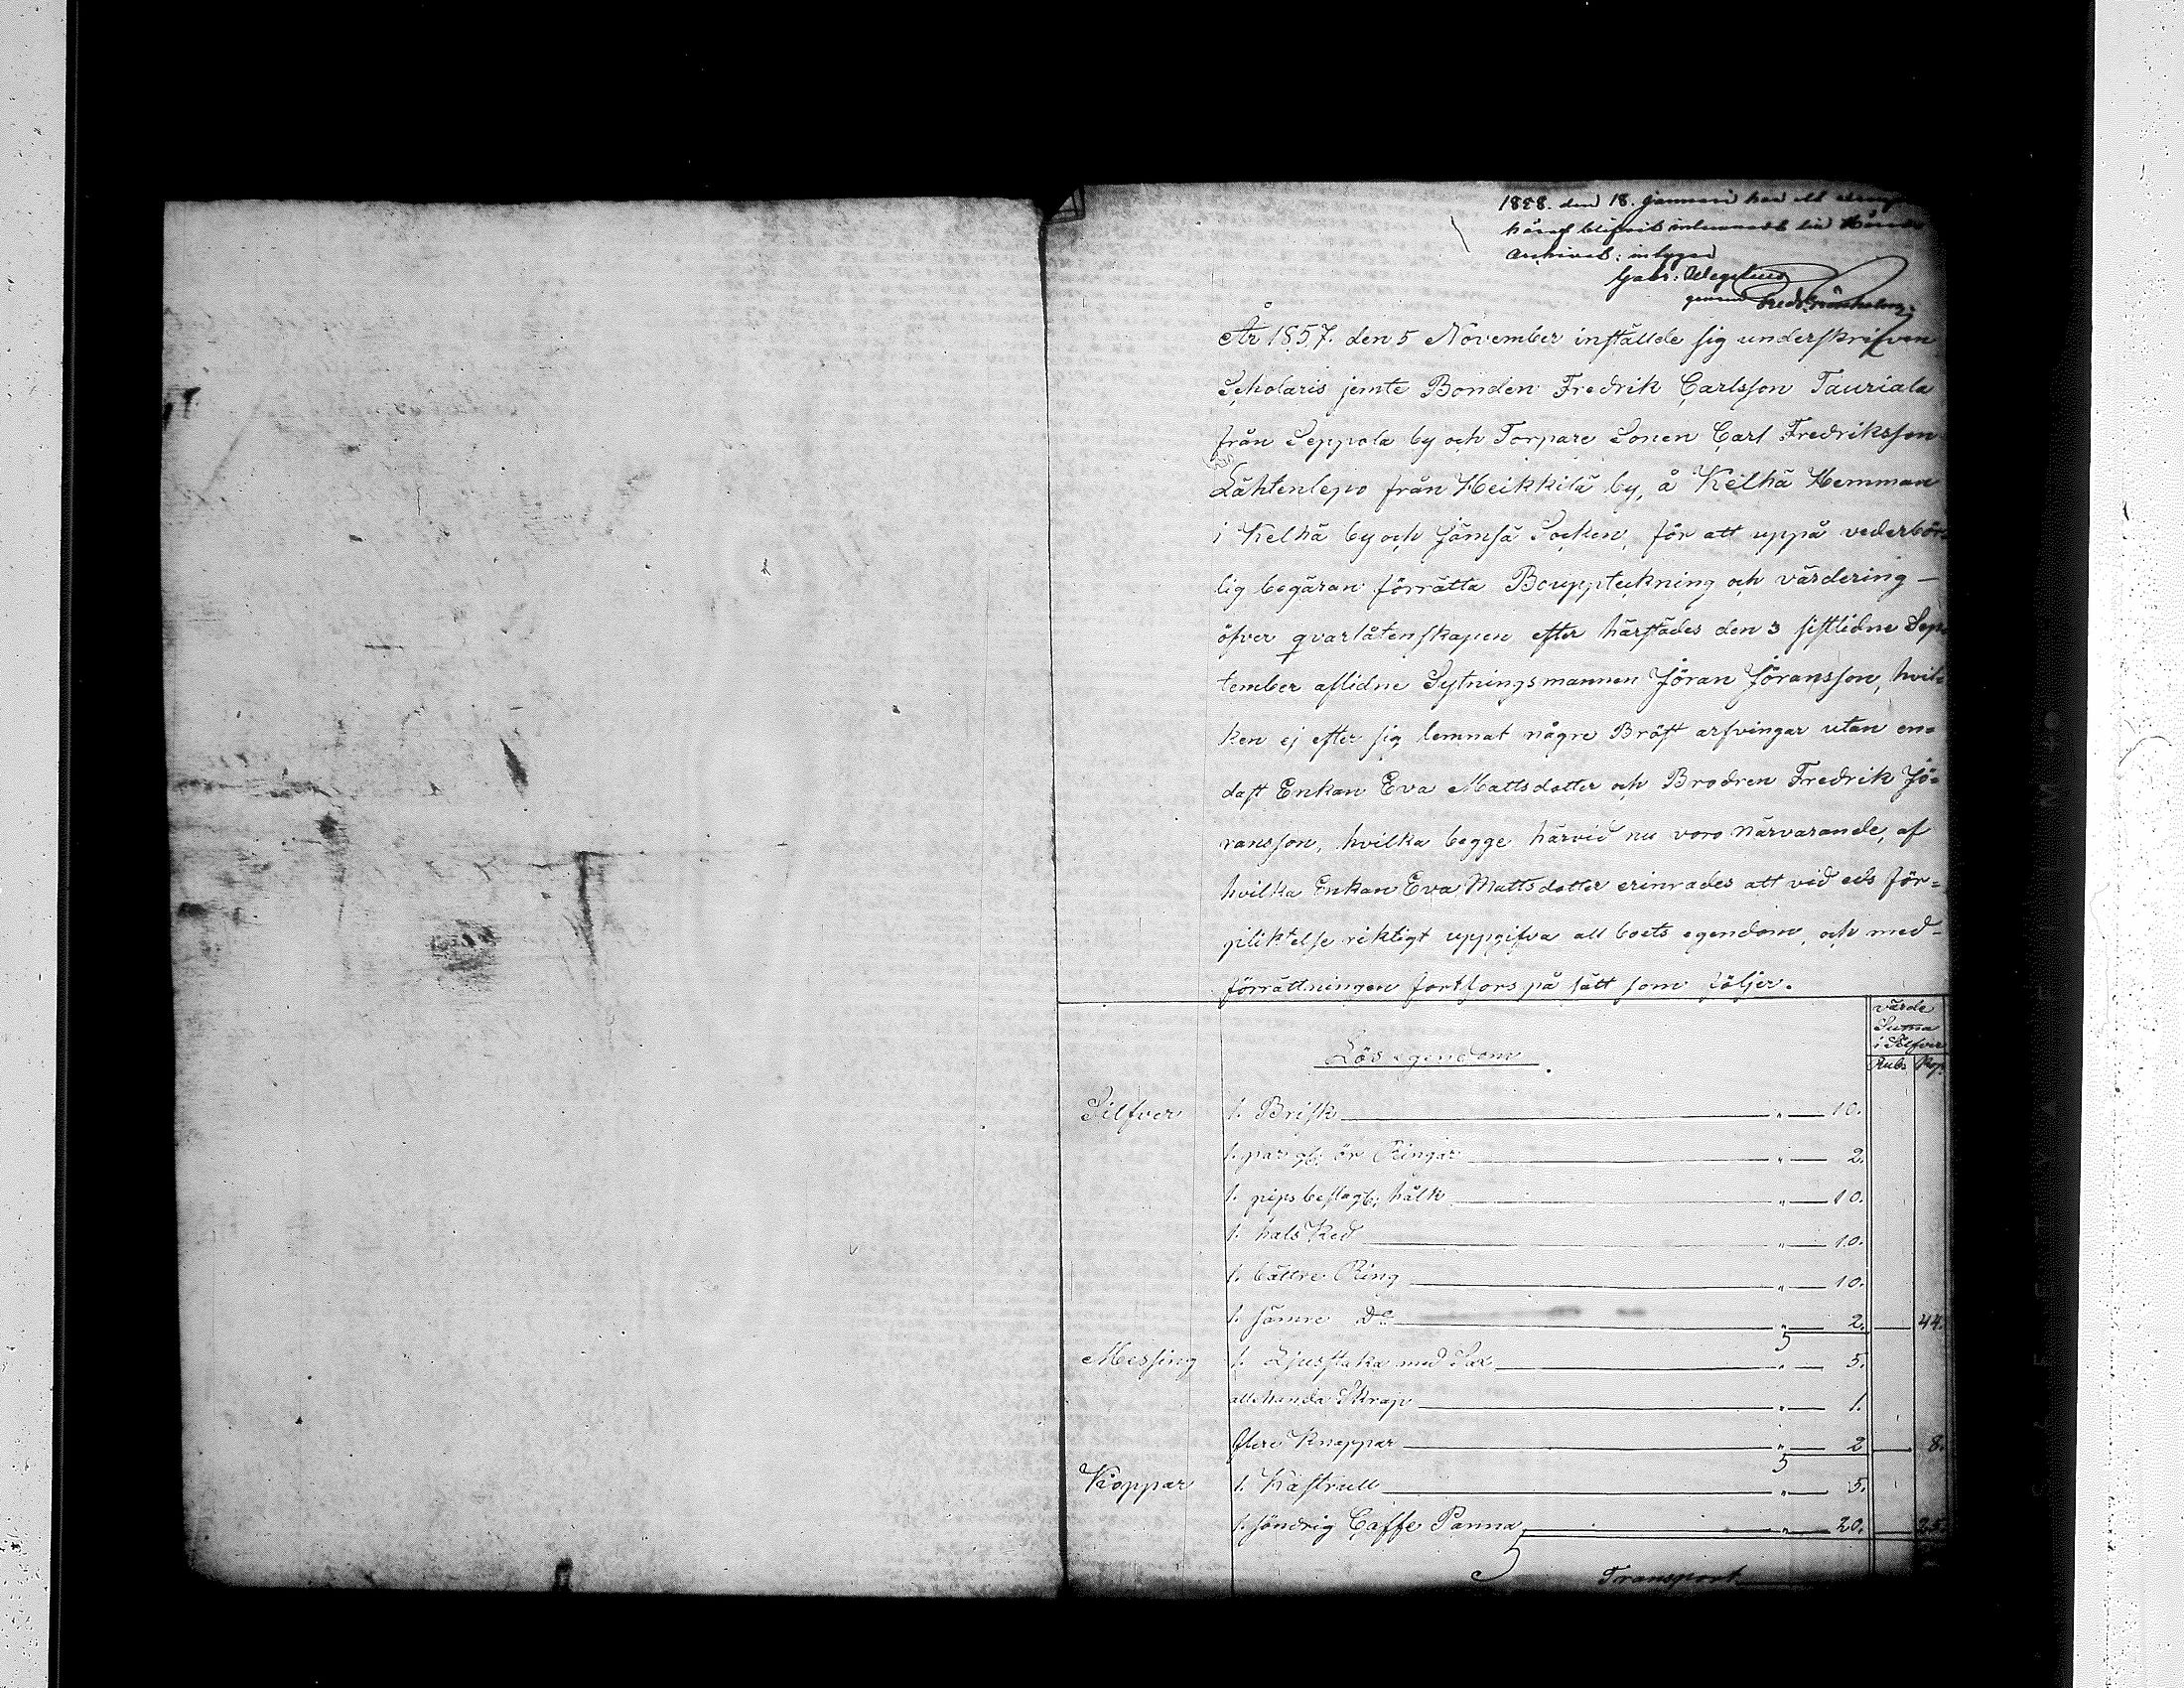 1858. den 18. Januari har ett exemplar
häraf blifvit inlemnadt till Härads
archivet; intygar
Gabr: Wegelius
genom Fredr Grönholm.
År 1857. den 5 November inställde sig underskrifven
Scholaris jemte Bonden Fredrik Carlsson Tauriala
från Seppola by och Torpare Sonen Carl Fredriksson
Lähtenlepo från Heikkilä by, å Kelhä Hemman
i Kelhä by och Jämsä Socken, för att uppå vederbör-
lig begäran förrätta Bouppteckning och värdering —
öfver qvarlåtenskapen efter härstädes den 3 sistlidne Sep
tember aflidne Sytningsmannen Jöran Jöransson, hvil=
ken ej efter sig lemnat någre Bröst arfvingar utan en=
dast Enkan Eva Mattsdotter och Brodren Fredrik Jö=
ransson, hvilka begge härvid nu voro närvarande, af
hvilka Enkan Eva Mattsdotter erinrades att vid eds för=
pliktelse riktigt uppgifva all boets egendom, och med-
förrättningen fortfors på sätt som följer.
värde
Suma
i Silfver
Lös egendom. Rub. Kop.
Silfver 1. Brisk " — 10.
1. par gb: ör Ringar " — 2.
1. pips beslag b: hålk " — 10.
1. hals Ked " — 10.
1. bättre Ring " — 10.
1. sämre Do " — 2. — 44.
Messing 1. Ljusstaka med Sax " — 5.
allehanda Skrap " — 1.
flere Knappar " — 2 — 8.
Koppar 1. Kastrull " — 5.
1. söndrig Caffe Panna " — 20. — 25
Transport